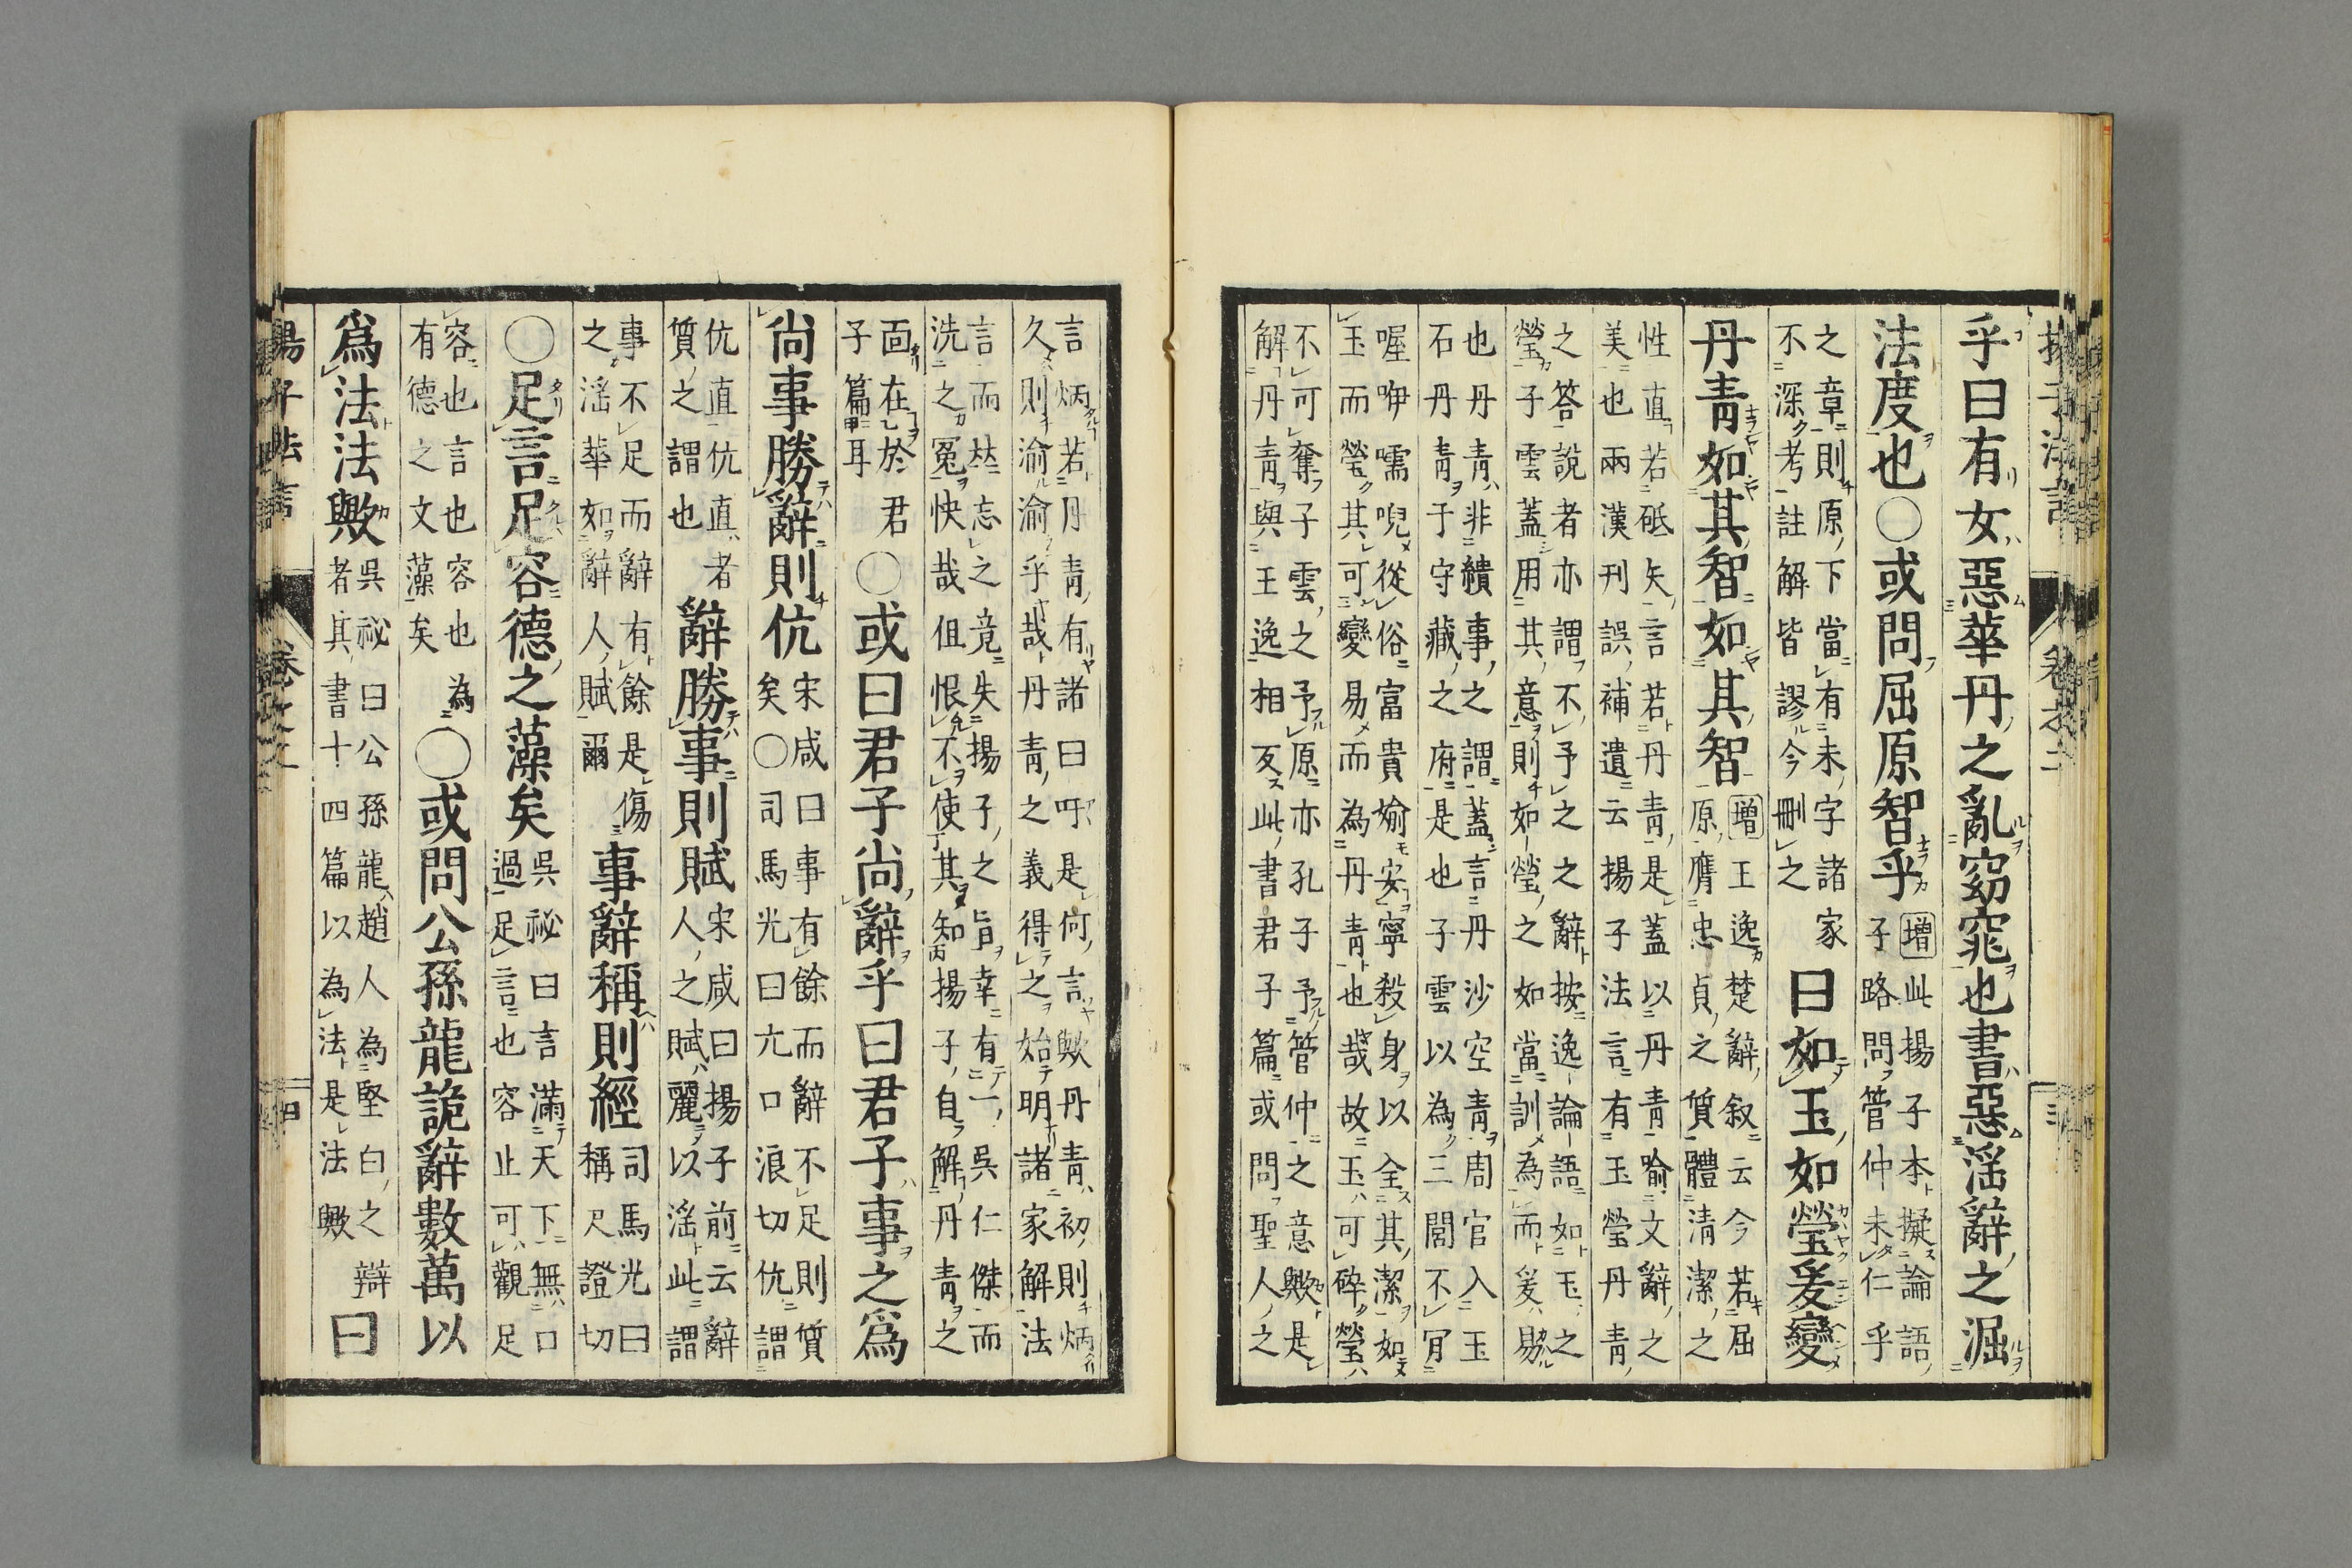 乎曰有女惡華丹之亂窈窕也書惡淫辭之淈
法度也〇或問屈原智乎
增此揚子本擬論語
子路問管仲未仁乎
之章則原下當有未字諸家
不深考註解皆謬今刪之
曰如玉如瑩爰變
丹青如其智如其智
增王逸楚辭叙云今若屈
原膺忠貞之質體清潔之
性直若砥矢言若丹青是蓋以丹青喻文辭之
美也兩漢刊誤補遺云揚子法言有玉瑩丹青
之答說者亦謂不予之之辭按逸論語如玉之
瑩子雲蓋用其意則如瑩之如當訓為而爰易
也丹青非績事之謂蓋言丹沙空青周官入玉
石丹青于守藏之府是也子雲以為三閭不肎
喔咿嚅唲從俗富貴婾安寧殺身以全其潔如
玉而瑩其可變易而為丹青也哉故玉可碎瑩
不可奪子雲之予原亦孔子予管仲之意歟是
解丹青與王逸相反此書君子篇或問聖人之
言炳若丹青有諸曰吁是何言歟丹青初則炳
久則渝渝乎哉丹青之義得之始明諸家解法
言而㘽忘之竟失揚子之旨幸有一吳仁傑而
洗之冤快哉但恨不使其知揚子自解丹青之
面在於君
子篇耳
〇或曰君子尚辭乎曰君子事之爲
尚事勝辭則伉
宋咸曰事有餘而辭不足則質
矣〇司馬光曰亢口浪切伉謂
伉直伉直者
質之謂也
辭勝事則賦
宋咸曰揚子前云辭
人之賦麗以淫此謂
事不足而辭有餘是傷
之淫華如辭人賦爾
事辭稱則經
司馬光曰
稱尺證切
〇足言足容德之藻矣
吳祕曰言滿天下無口
過足言也容止可觀足
容也言也容也為
有德之文藻矣
〇或問公孫龍詭辭數萬以
爲法法歟
吳祕曰公孫龍趙人為堅白之辯
者其書十四篇以為法是法歟
曰